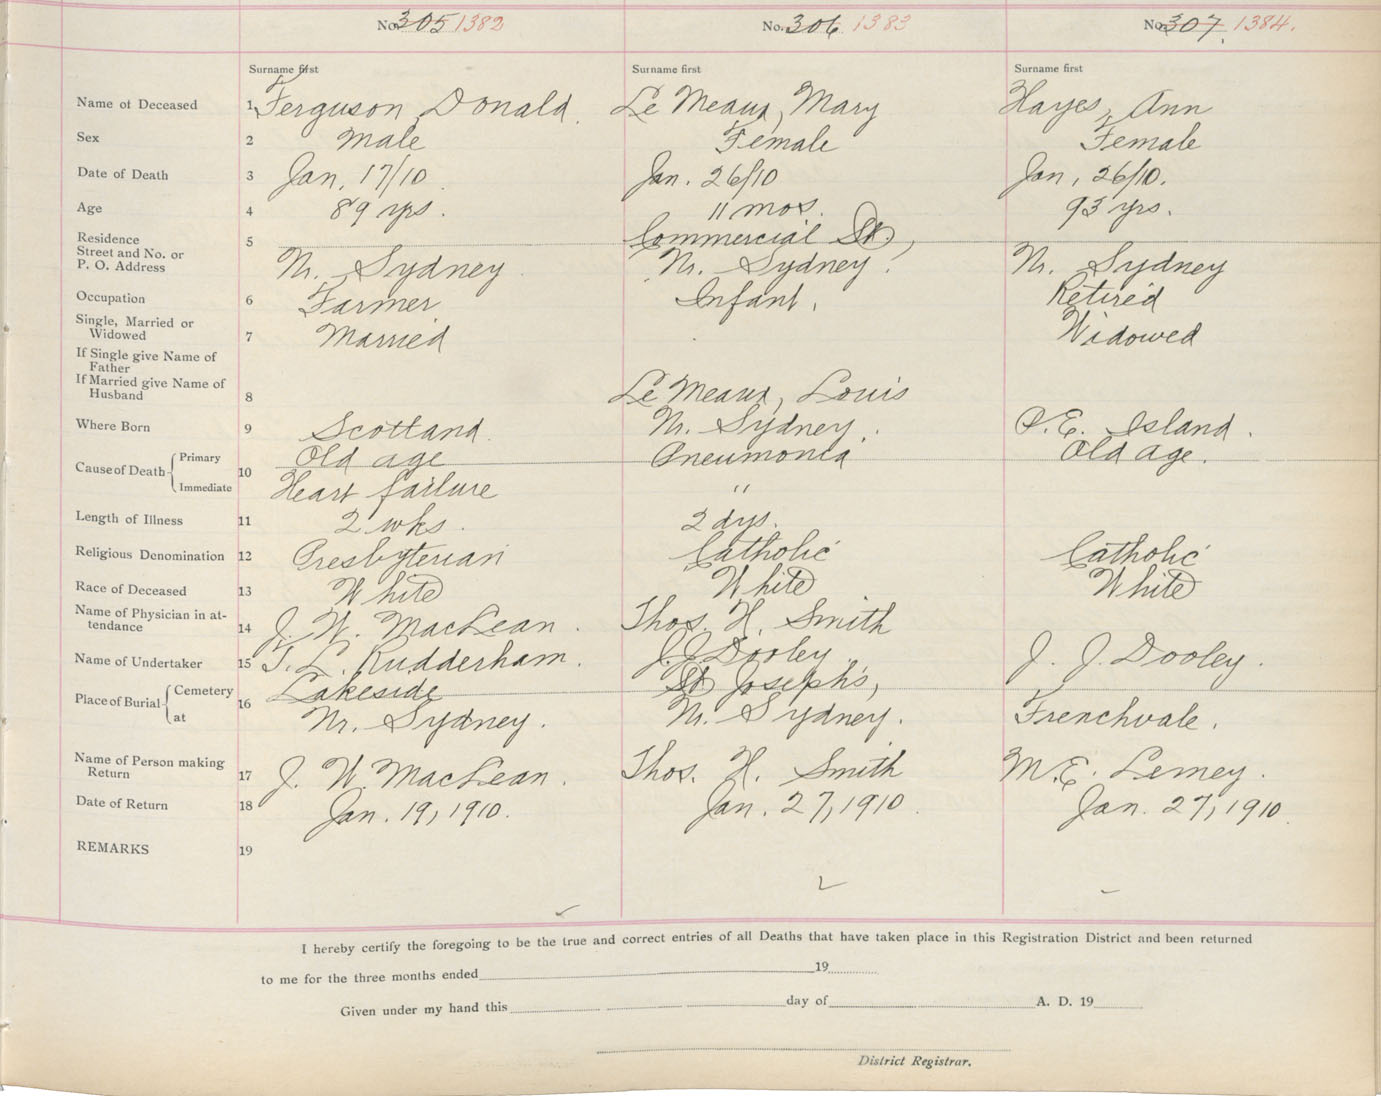 No. 305 1382 No. 306 1383 No. 307. 1384.
Surname first Surname first Surname first
Name of Deceased 1 Ferguson, Donald. Le Meaux, Mary Hayes, Ann
Sex 2 Male Female Female
Date of Death 3 Jan. 17/10. Jan. 26/10 Jan. 26/10.
Age 4 89 yrs. 11 mos. 93 yrs.
Residence 5 Commercial St.,
Street and No. or
P. O. Address N. Sydney. N. Sydney. N. Sydney
Occupation 6 Farmer Infant. Retired
Single, Married or
Widowed 7 Married Widowed
If Single give Name of
Father
If Married give Name of
Husband 8 Le Meaux, Louis
Where Born 9 Scotland. N. Sydney. P. E. Island.
Cause of Death 10 Primary Old age Pneumonia Old age.
Immediate Heart failure "
Length of Illness 11 2 wks. 2 dys.
Religious Denomination 12 Presbyterian Catholic Catholic
Race of Deceased 13 White White White
Name of Physician in at-
tendance 14 J. W. MacLean. Thos. H. Smith
Name of Undertaker 15 T. L. Rudderham. J. J. Dooley J. J. Dooley.
Place of Burial 16 Cemetery Lakeside St Joseph's,
at N. Sydney. N. Sydney. Frenchvale.
Name of Person making
Return 17 J. W. MacLean. Thos. H. Smith M. E. Lemey.
Date of Return 18 Jan. 19, 1910. Jan. 27, 1910. Jan. 27, 1910.
REMARKS 19
I hereby certify the foregoing to be the true and correct entries of all Deaths that have taken place in this Registration District and been returned
to me for the three months ended 19
Given under my hand this day of A. D. 19
District Registrar.